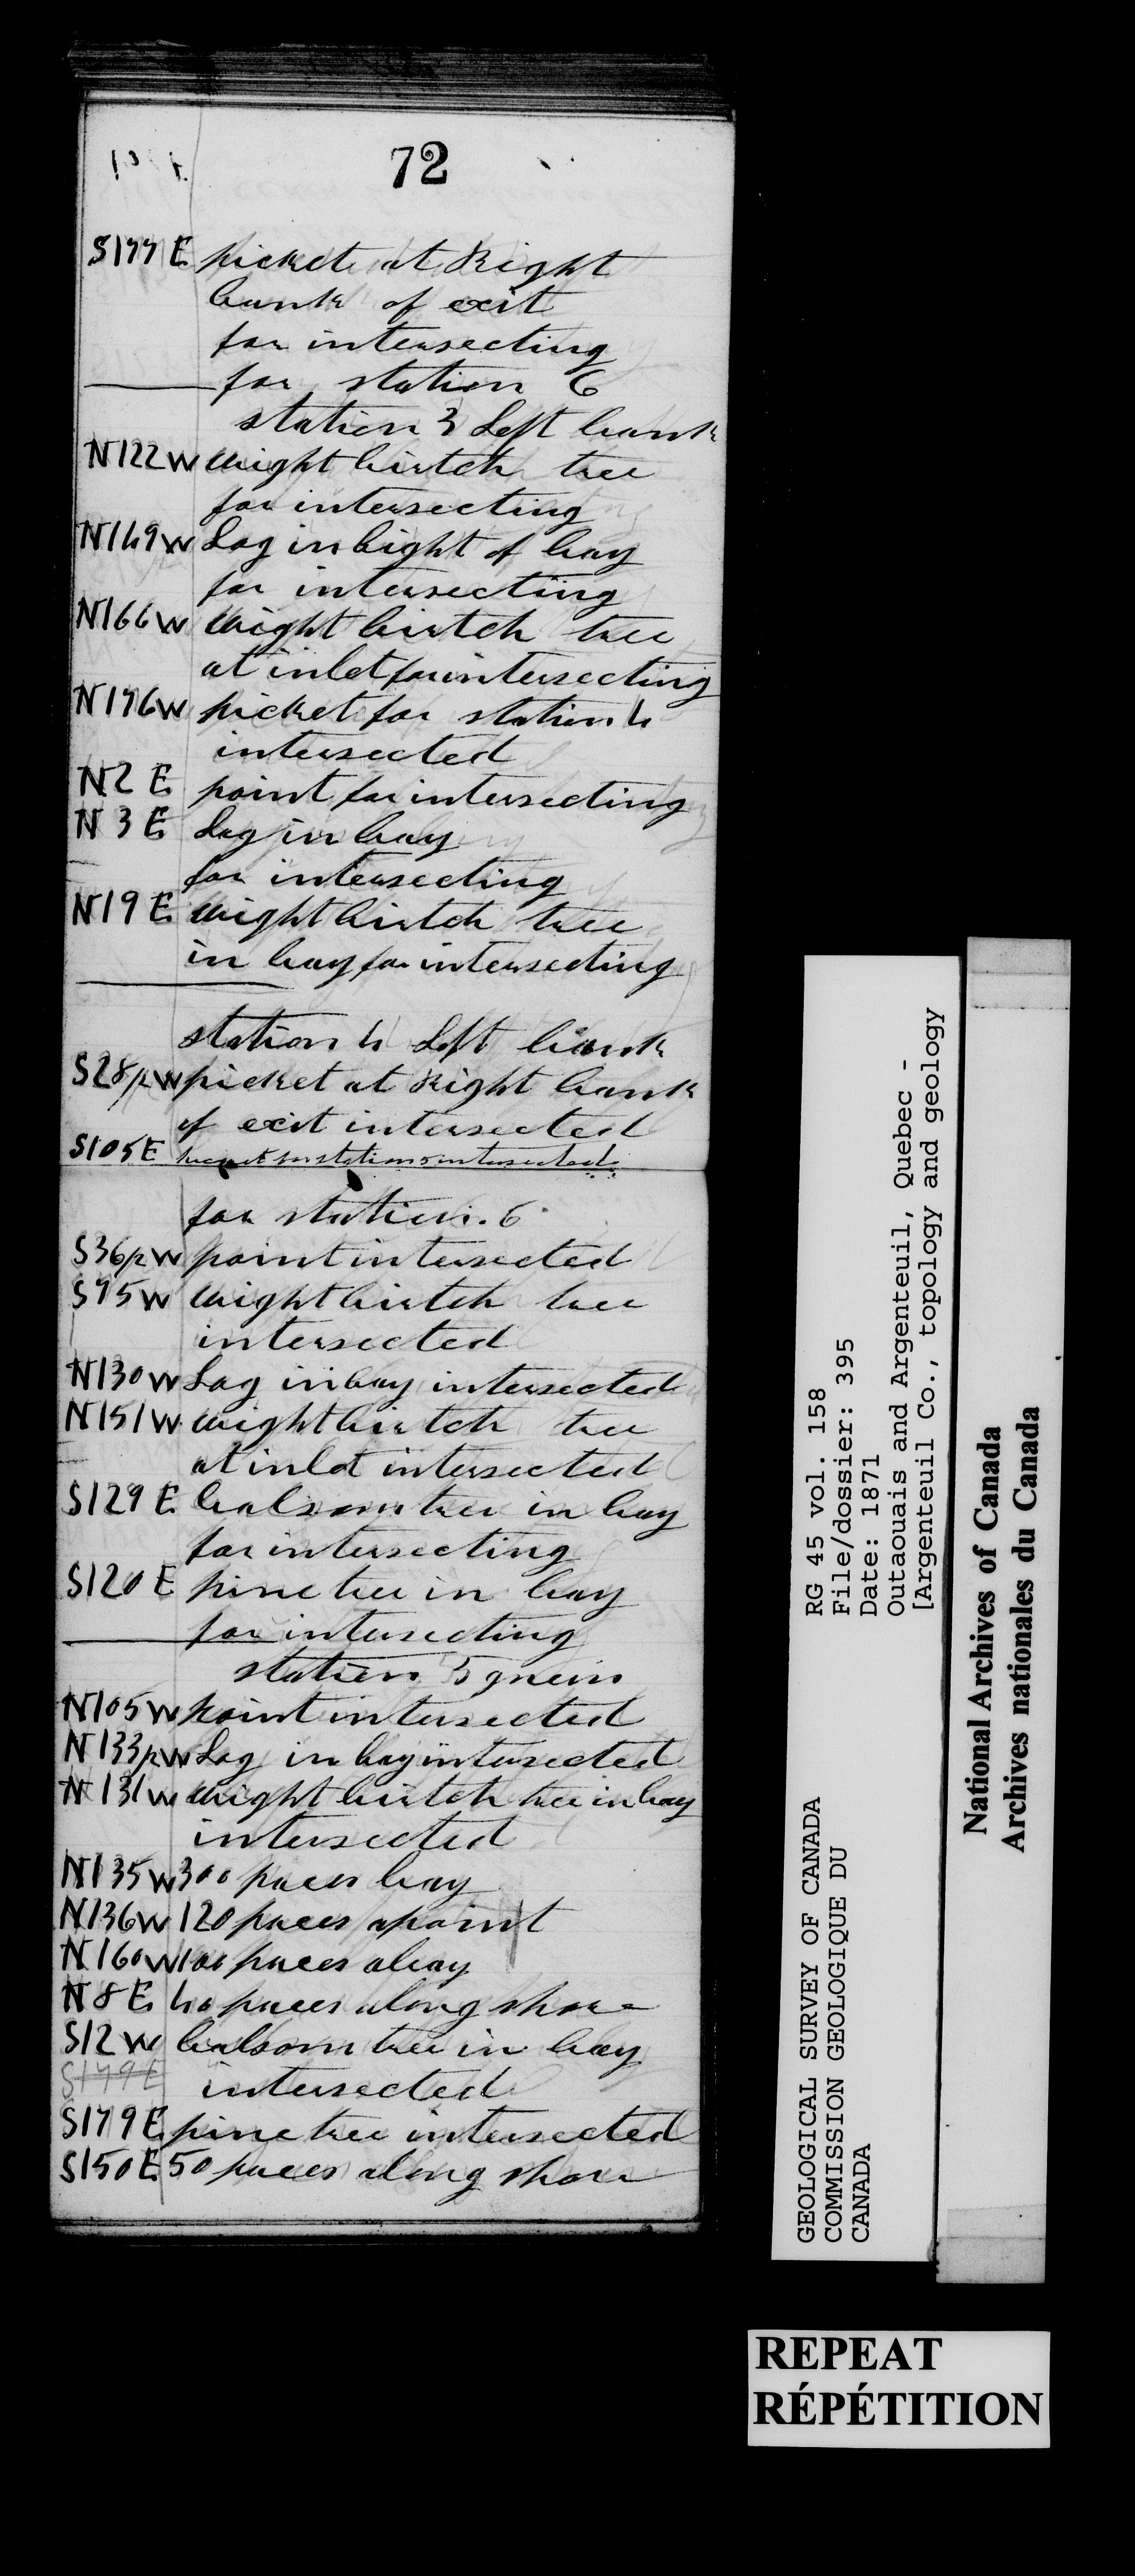 72
S177E picket at Right
bank of exit
for intersecting
for station 6
station 3 Left bank
N122W wight birtch tree
for intersecting
N149W Log in bight of bay
for intersecting
N166W wight birtch tree
at inlet for intersecting
N176W picket for station 4
intersected
N2E point for intersecting
N3E Log in bay
for intersecting
N19E wight birtch tree
in bay for intersecting
station 4 Left bank
S28½W picket at Right bank
of exit intersected
S105E picket for station 5 intersected
for station 6
S36½W point intersected
S75W wight birtch tree
intersected
N130W Log in bay intersected
N151W wight birtch tree
at inlet intersected
S129E balsom tree in bay
for intersecting
S120E pine tree in bay
for intersecting
station 5
N105W point intersected
N133½W Log in bay intersected
N131W wight birtch tree in bay
intersected
N135W 300 paces bay
N136W 120 paces a point
N160W 100 paces a bay
N8E 40 paces along shore
S12W balsom tree in bay
S179E intersected
S179E pine tree intersected
S150E 50 paces along shore
GEOLOGICAL SURVEY OF CANADA
COMMISSION GEOLOGIQUE DU
CANADA
RG 45 vol. 158
File/dossier: 395
Date: 1871
Outaouais and Argenteuil, Quebec -
[Argenteuil Co., topology and geology
National Archives of Canada
Archives nationales du Canada
REPEAT
RÉPÉTITION